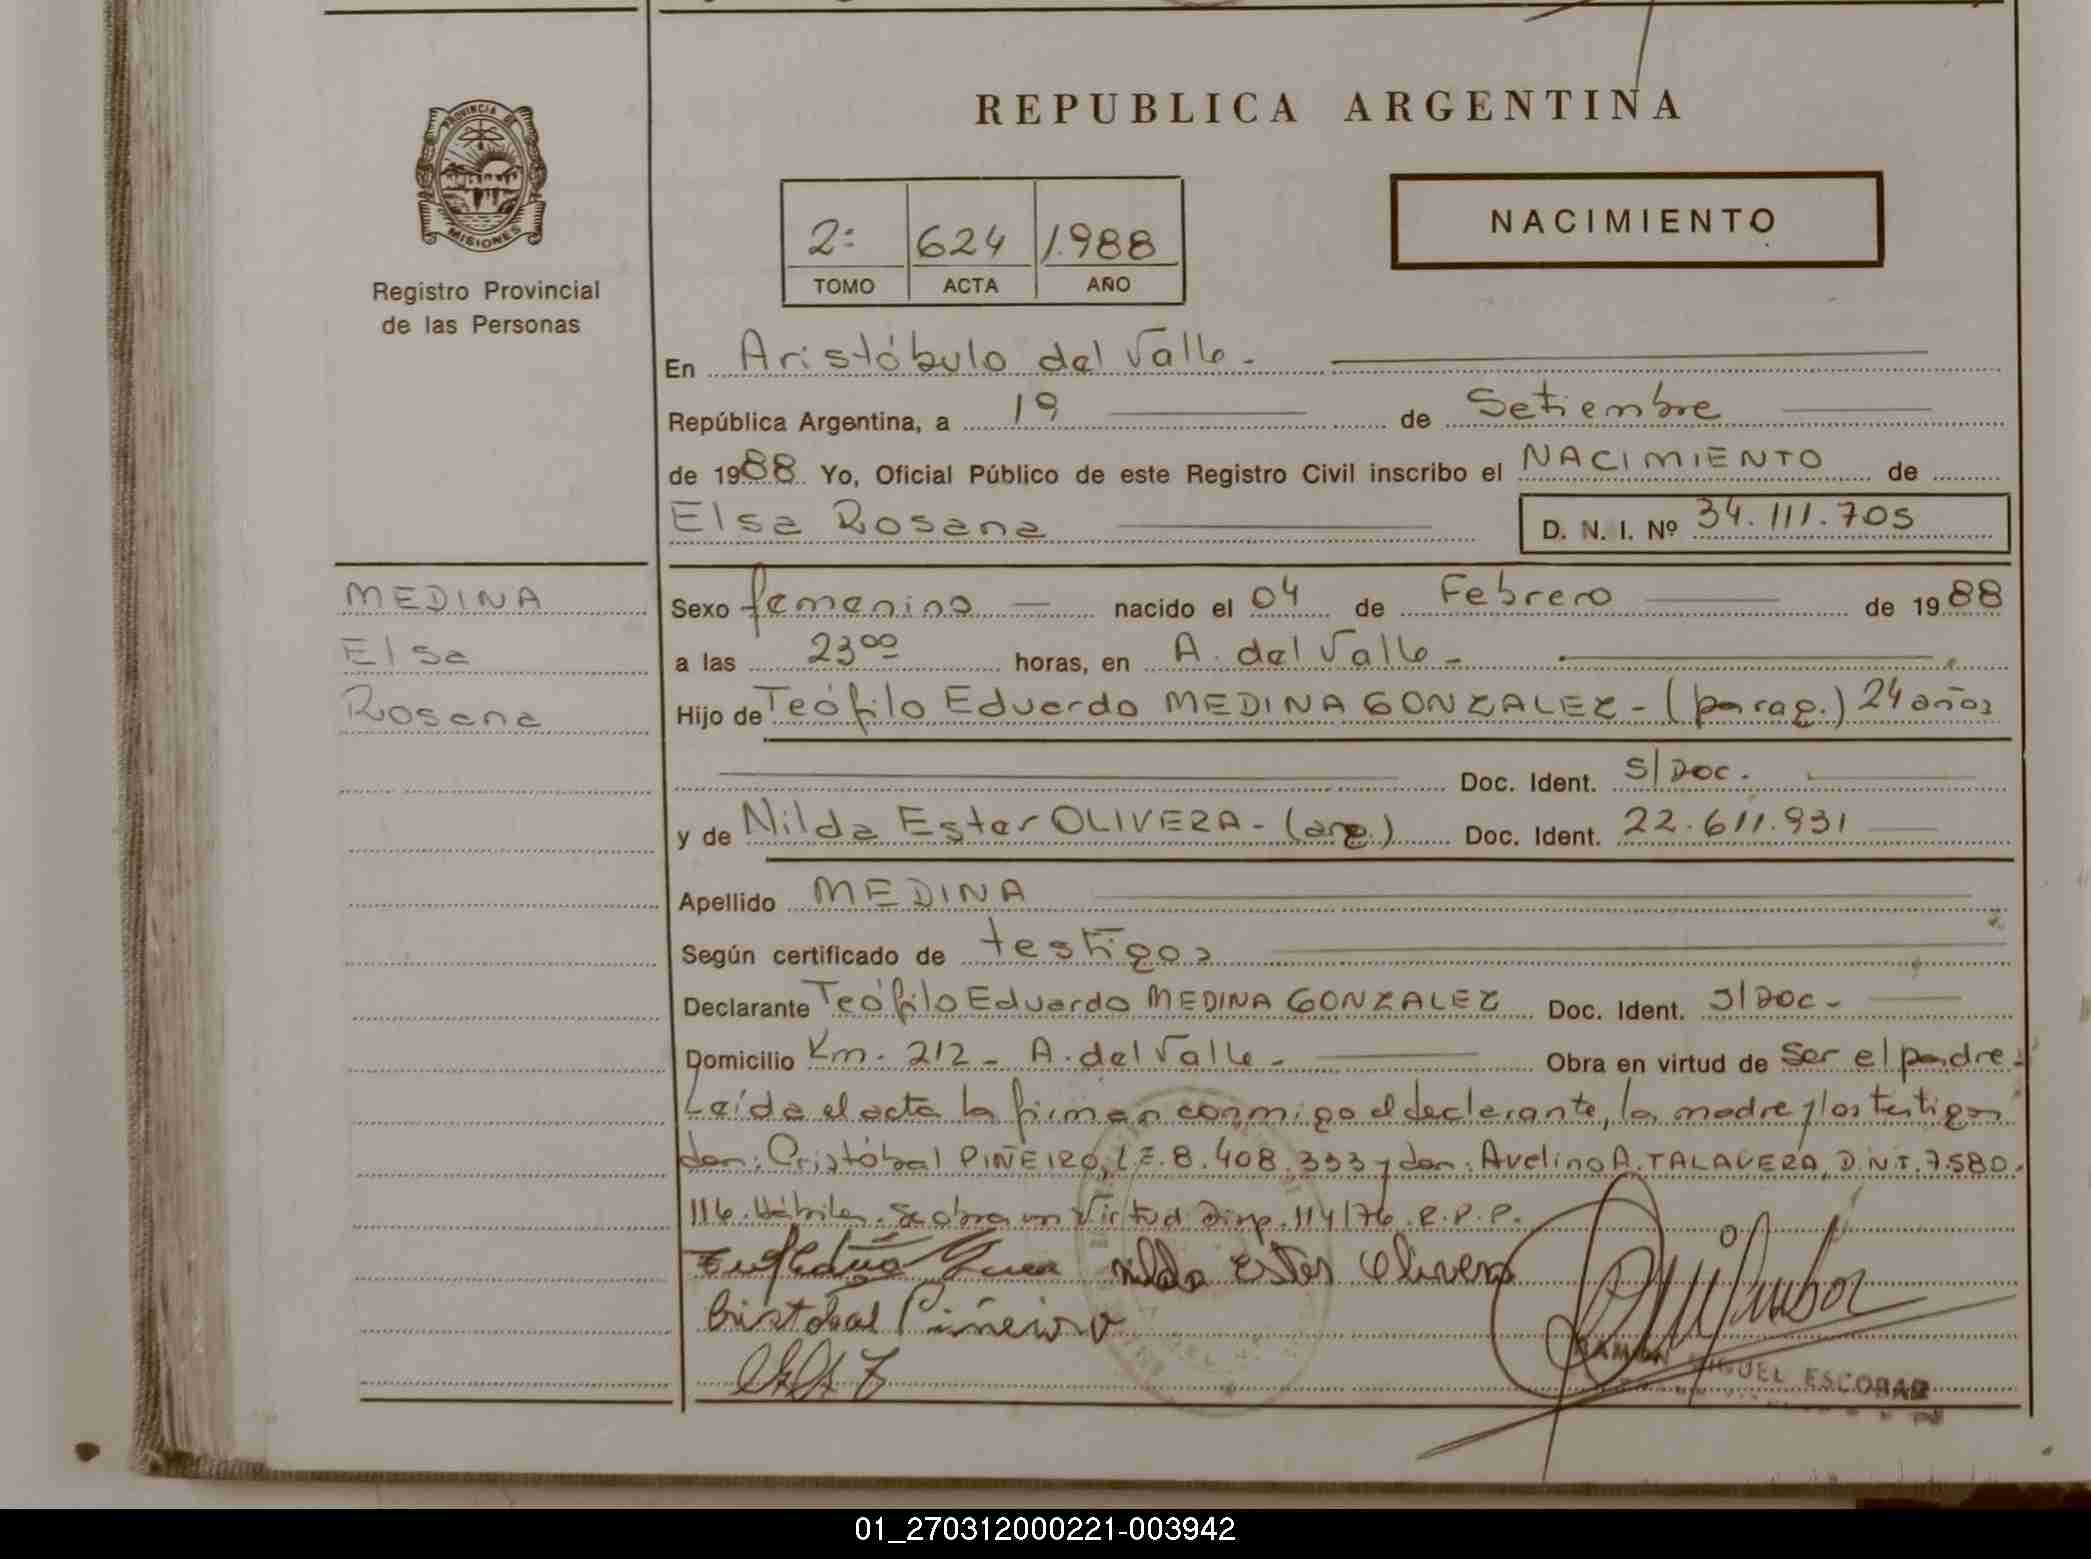 PROVINCIA DE
MISIONES
Registro Provincial
de las Personas
REPUBLICA ARGENTINA
2: 624 1.988
TOMO ACTA AÑO
NACIMIENTO
En Aristóbulo del Valle -
República Argentina, a 19 de Setiembre
de 1988 Yo, Oficial Público de este Registro Civil inscribo el NACIMIENTO de
Elsa Rosana
D. N. I. Nº 34.111.705
MEDINA
Elsa
Rosana
Sexo femenino nacido el 04 de Febrero de 1988
a las 23⁰⁰ horas, en A. del Valle -
Hijo de Teófilo Eduardo MEDINA GONZALEZ - (parag.) 24 años
Doc. Ident. S/Doc.
y de Nilda Ester OLIVERA - (arg.) Doc. Ident. 22.611.931
Apellido MEDINA
Según certificado de testigos
Declarante Teófilo Eduardo MEDINA GONZALEZ Doc. Ident. S/Doc -
Domicilio Km. 212 - A. del Valle - Obra en virtud de ser el padre -
Leída el acta la firman conmigo el declarante, la madre y los testigos
don: Cristóbal PIÑEIRO, L.E. 8.408.333 y don: Avelino A. TALAVERA, D.N.I. 7.580.
116. Hábiles. Se obra en Virtud Disp. 114/76 R.P.P.
nilda Ester Olivera
Cristobal Piñeiro
RAMON MIGUEL ESCOBAR
01_270312000221-003942